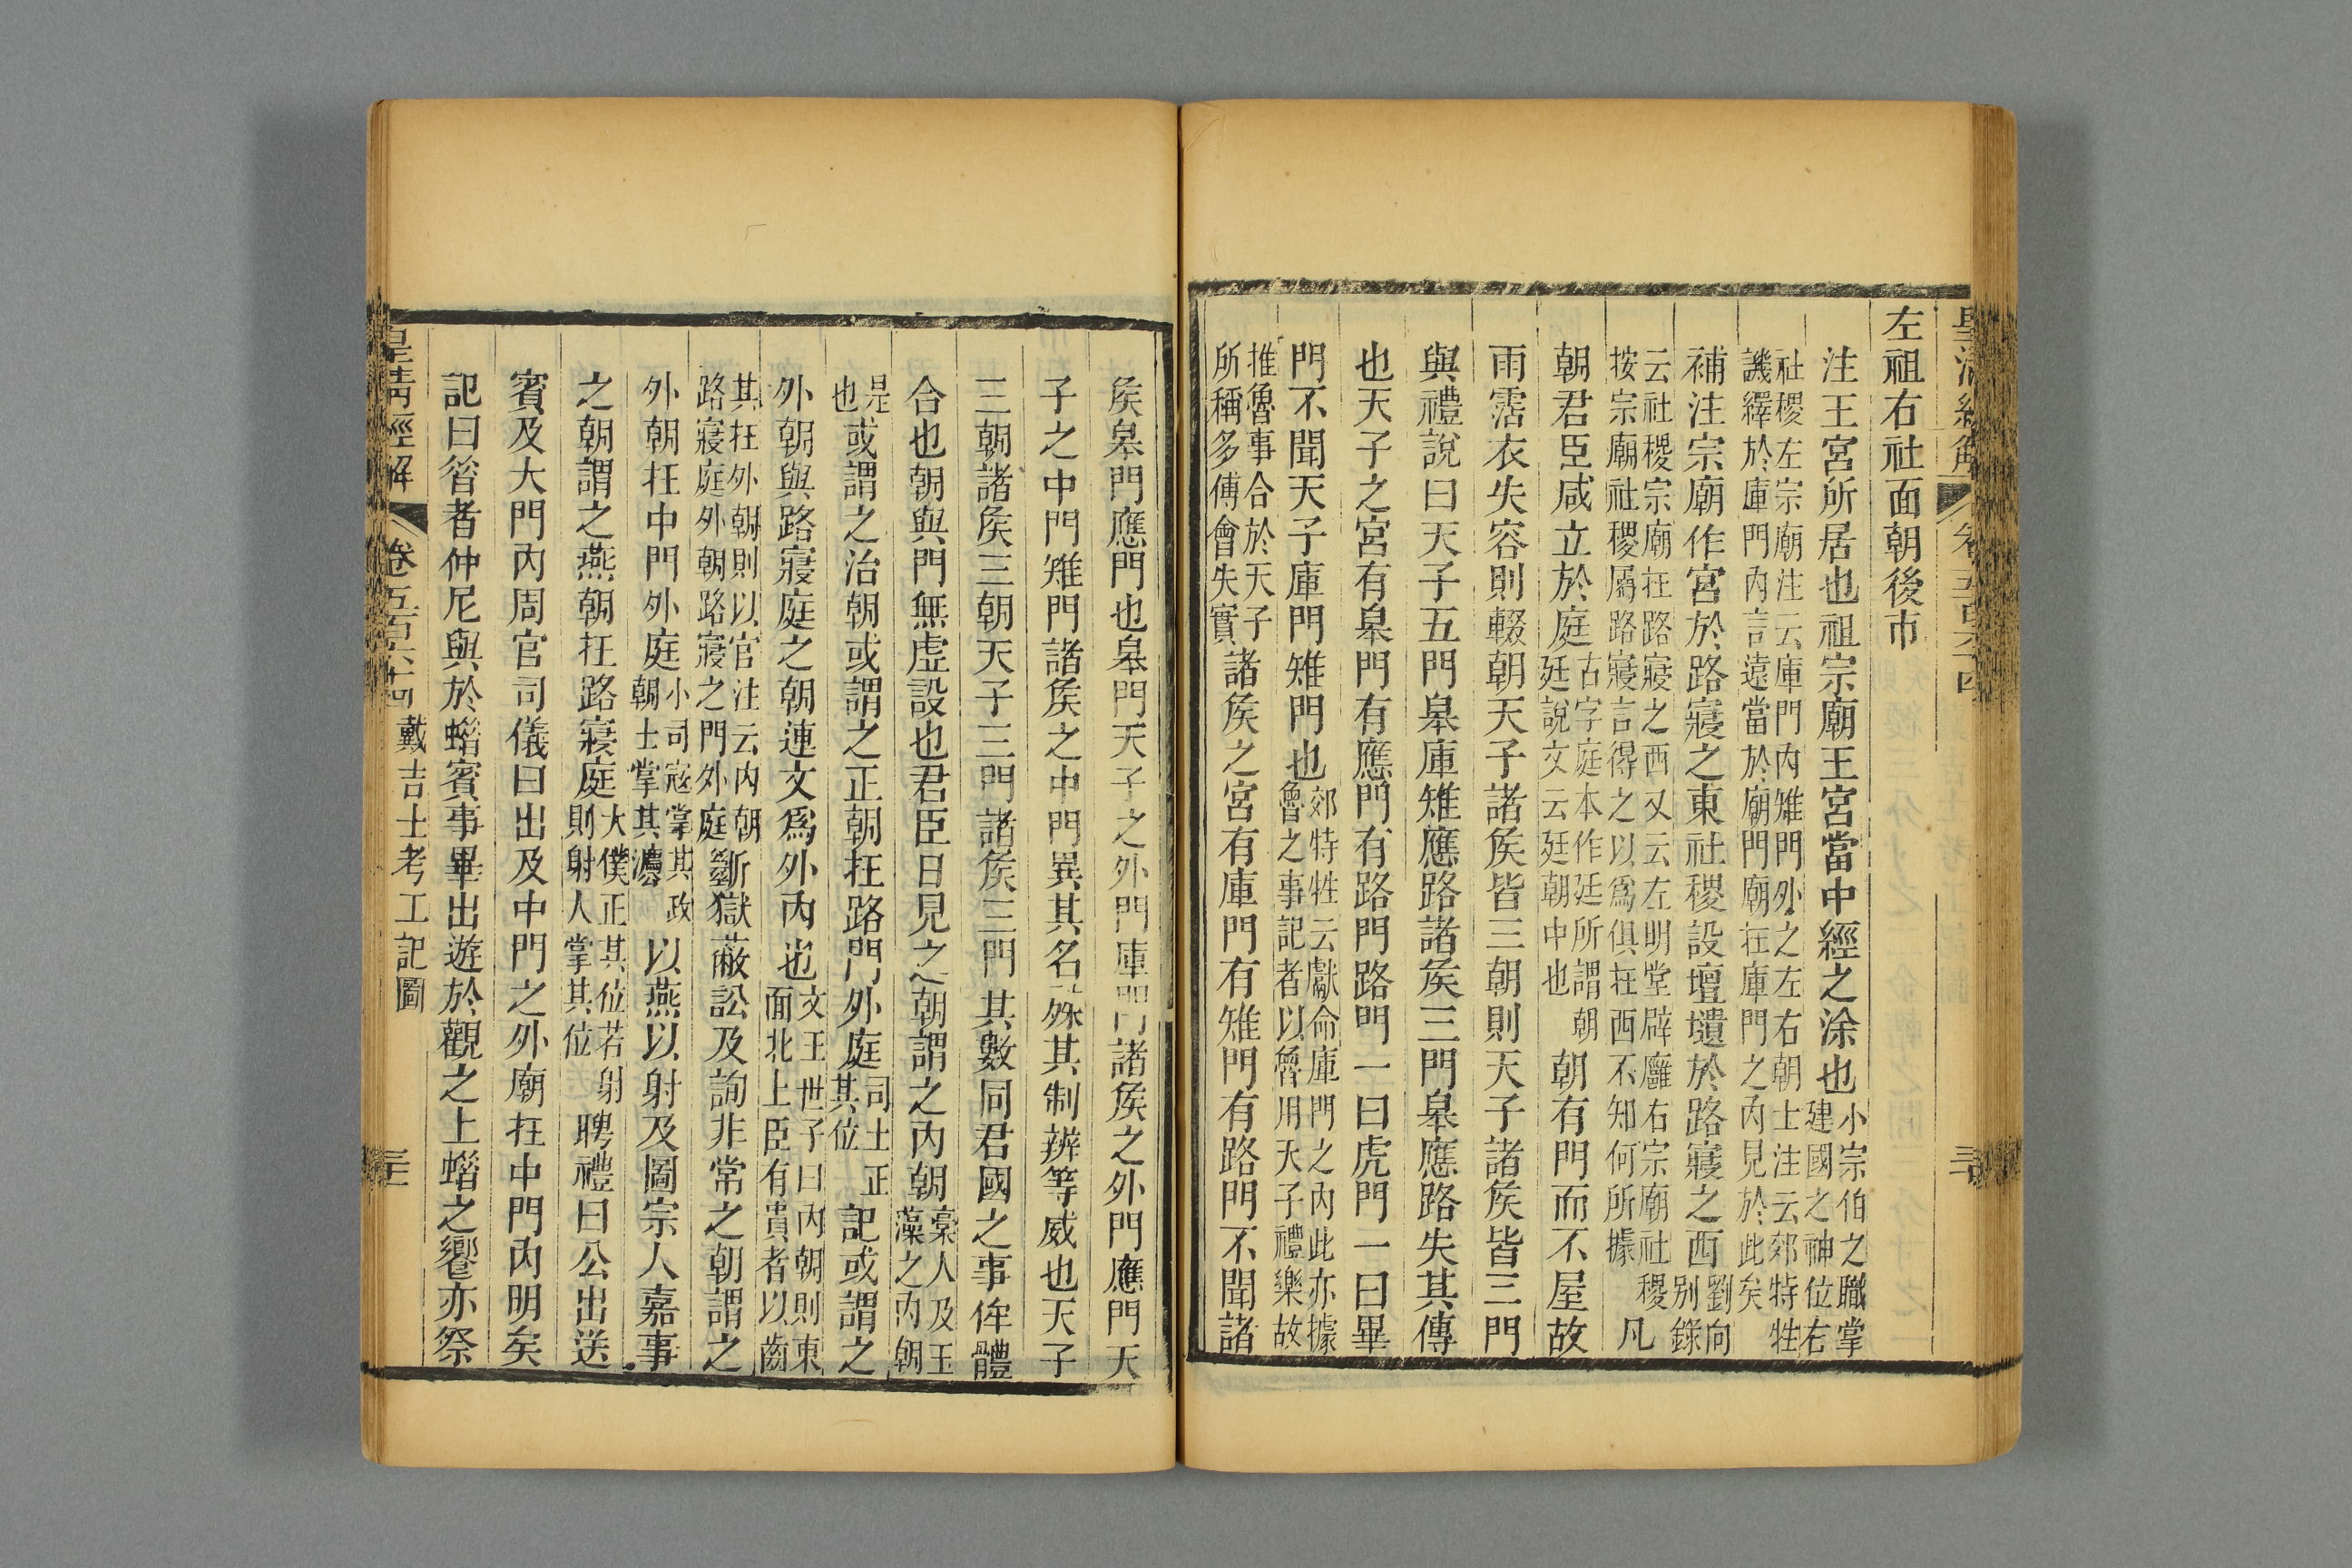 皇清經解
卷五百六十四
三十
左祖右社面朝後市
注王宮所居也祖宗廟王宮當中經之涂也小宗伯之職掌
建國之神位右
社稷左宗廟注云庫門內雉門外之左右朝士注云郊特牲
譏繹於庫門內言遠當於廟門廟在庫門之內見於此矣
補注宗廟作宮於路寢之東社稷設壇壝於路寢之西劉向
別錄
云社稷宗廟在路寢之西又云左明堂辟廱右宗廟社稷
按宗廟社稷屬路寢言得之以爲俱在西不知何所據
凡
朝君臣咸立於庭古字庭本作廷所謂朝
廷說文云廷朝中也
朝有門而不屋故
雨霑衣失容則輟朝天子諸矦皆三朝則天子諸矦皆三門
與禮說曰天子五門皋庫雉應路諸矦三門皋應路失其傳
也天子之宮有皋門有應門有路門路門一曰虎門一曰畢
門不聞天子庫門雉門也郊特牲云獻命庫門之內此亦據
魯之事記者以魯用天子禮樂故
推魯事合於天子
所稱多傅會失實
諸矦之宮有庫門有雉門有路門不聞諸
矦皋門應門也皋門天子之外門庫門諸矦之外門應門天
子之中門雉門諸矦之中門異其名殊其制辨等威也天子
三朝諸矦三朝天子三門諸矦三門其數同君國之事侔體
合也朝與門無虛設也君臣日見之朝謂之內朝稾人及玉
藻之內朝
是
也
或謂之治朝或謂之正朝在路門外庭司士正
其位
記或謂之
外朝與路寢庭之朝連文爲外內也文王世子曰內朝則東
面北上臣有貴者以齒
其在外朝則以官注云內朝
路寢庭外朝路寢之門外庭
斷獄蔽訟及詢非常之朝謂之
外朝在中門外庭小司寇掌其政
朝士掌其灋
以燕以射及圖宗人嘉事
之朝謂之燕朝在路寢庭大僕正其位若射
則射人掌其位
聘禮曰公出送
賓及大門內周官司儀曰出及中門之外廟在中門內明矣
記曰昔者仲尼與於蜡賓事畢出遊於觀之上蜡之饗亦祭
皇清經解
卷五百六十四
戴吉士考工記圖
三十